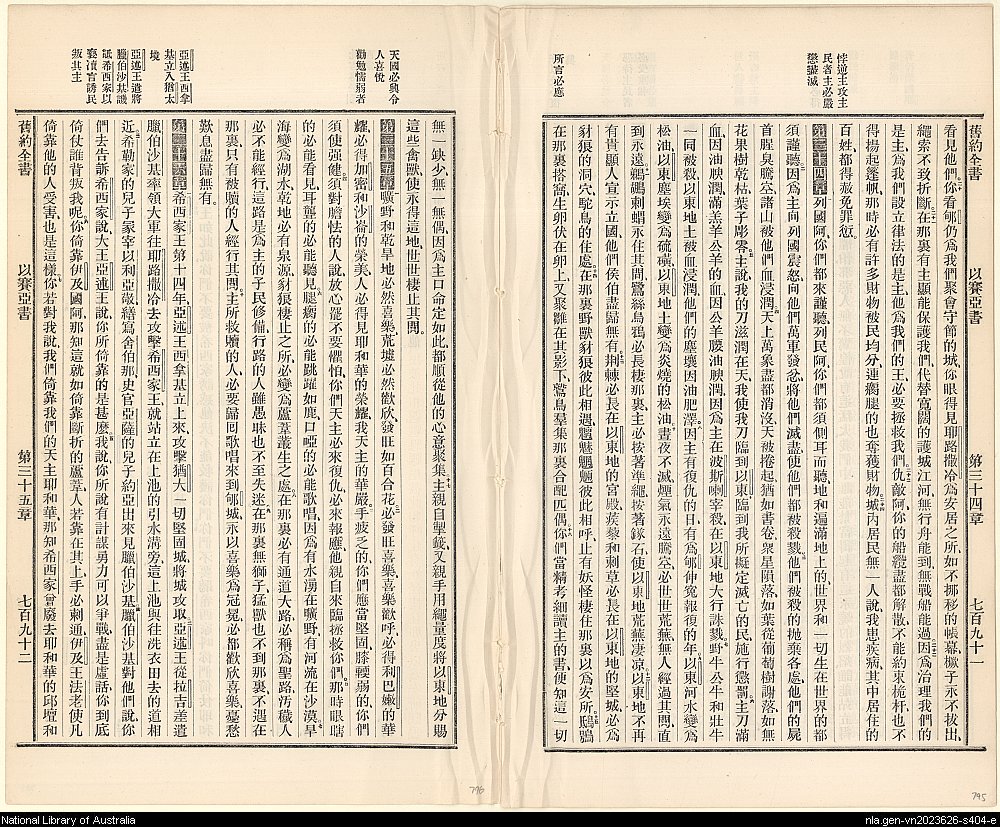 舊約全書 以賽亞書 第三十四章 七百九十一
悖逆主攻主
民者主必嚴
懲盡滅
所言必應
看見他們你看郇仍爲我們聚會守節的城你眼得見耶路撒冷爲安居之所如不挪移的帳幕橛子永不拔出
繩索不致折斷在那裏有主顯能保護我們代替寬闊的護城江河無行舟能到無戰船能過因爲治理我們的
是主爲我們設立律法的是主他爲我們的王必要拯救我們仇敵阿你的船纜盡都解散不能約束桅杆也不
得揚起篷帆那時必有許多財物被民均分連瘸腿的也奪獲財物城內居民無一人說我患疾病其中居住的
百姓都得赦免罪愆
第三十四章列國阿你們都來謹聽列民阿你們都須側耳而聽地和遍滿地上的世界和一切生在世界的都
須謹聽因爲主向列國震怒向他們萬軍發忿將他們滅盡使他們都被殺戮他們被殺的拋棄各處他們的屍
首腥臭騰空諸山被他們血浸潤天上萬象盡都消沒天被捲起猶如書卷衆星隕落如葉從葡萄樹謝落如無
花果樹乾枯葉子彫零主說我的刀滋潤在天我使我刀臨到以東臨到我所擬定滅亡的民施行懲罰主刀滿
血因油腴潤滿羔羊公羊的血因公羊腰油腴潤因爲主在波斯喇宰殺在以東地大行誅戮野牛公牛和壯牛
一同被殺以東地土被血浸潤他們的塵壤因油肥澤因主有復仇的日有爲郇伸冤報復的年以東河水變爲
松油以東塵埃變爲硫磺以東地土變爲炎燒的松油晝夜不滅煙氣永遠騰空必世世荒蕪無人經過其間直
到永遠鵜鶘刺蝟永住其間鷺鷥烏鴉必長棲那裏主必按著準繩按著錘石使以東地荒蕪凄涼以東地不再
有貴顯人宣示立國他們侯伯盡歸無有荆棘必長在以東地的宮殿蒺藜和刺草必長在以東地的堅城必爲
豺狼的洞穴駝鳥的住處在那裏野獸豺狼彼此相遇魑魅魍魎彼此相呼止有妖怪棲住那裏以爲安所鴟鴞
在那裏搭窩生卵伏在卵上又聚雛在其影下鷙鳥羣集那裏合配匹偶你們當精考細讀主的書便知這一切
天國必興令
人喜悅
勸勉懦弱者
亞述王西拿
基立入猶太
境
亞述王遣將
臘伯沙基譏
詆希西家以
褻瀆言誘民
叛其主
無一缺少無一無偶因爲主口命定如此都順從他的心意聚集主親自掣籤又親手用繩量度將以東地分賜
這些禽獸使永得這地世世棲止其間
第三十五章曠野和乾旱地必然喜樂荒墟必然歡欣發旺如百合花必發旺喜樂喜樂歡呼必得利巴嫩的華
耀必得加密和沙崙的榮美人必得見耶和華的榮耀我天主的華嚴手疲乏的你們應當堅固膝輭弱的你們
須使强健須對膽怯的人說放心罷不要懼怕你們天主必來復仇必來報應他親自來臨拯救你們那時眼瞎
的必能看見耳聾的必能聽見腿瘸的必能跳躍如鹿口啞的必能歌唱因爲有水湧在曠野有河流在沙漠旱
海變爲湖水乾地必有泉源豺狼棲止之所必變爲蘆葦叢生之處在那裏必有通道大路必稱爲聖路汚穢人
必不能經行這路是爲主的子民修備行路的人雖愚昧也不至失迷在那裏無獅子猛獸也不到那裏不遇在
那裏只有被贖的人經行其間主所救贖的人必要歸囘歌唱來到郇城永以喜樂爲冠冕必都歡欣喜樂憂愁
歎息盡歸無有
第三十六章希西家王第十四年亞述王西拿基立上來攻擊猶大一切堅固城將城攻取亞述王從拉吉差遣
臘伯沙基率領大軍往耶路撒冷去攻擊希西家王就站立在上池的引水溝旁這上池與往洗衣田去的道相
近希勒家的兒子家宰以利亞敬繕寫舍伯那史官亞薩的兒子約亞出來見臘伯沙基臘伯沙基對他們說你
們去告訴希西家說大王亞述王說你所倚靠的是甚麼我說你所說有計謀勇力可以爭戰盡是虛話你到底
倚仗誰背叛我呢你倚靠伊及國阿那知這就如倚靠斷折的蘆葦人若靠在其上手必刺通伊及王法老使凡
倚靠他的人受害也是這樣你若對我說我們倚靠我們的天主耶和華那知希西家曾廢去耶和華的邱壇和
舊約全書 以賽亞書 第三十五章 七百九十二
796
795
National Library of Australia
nla.gen-vn2023626-s404-e